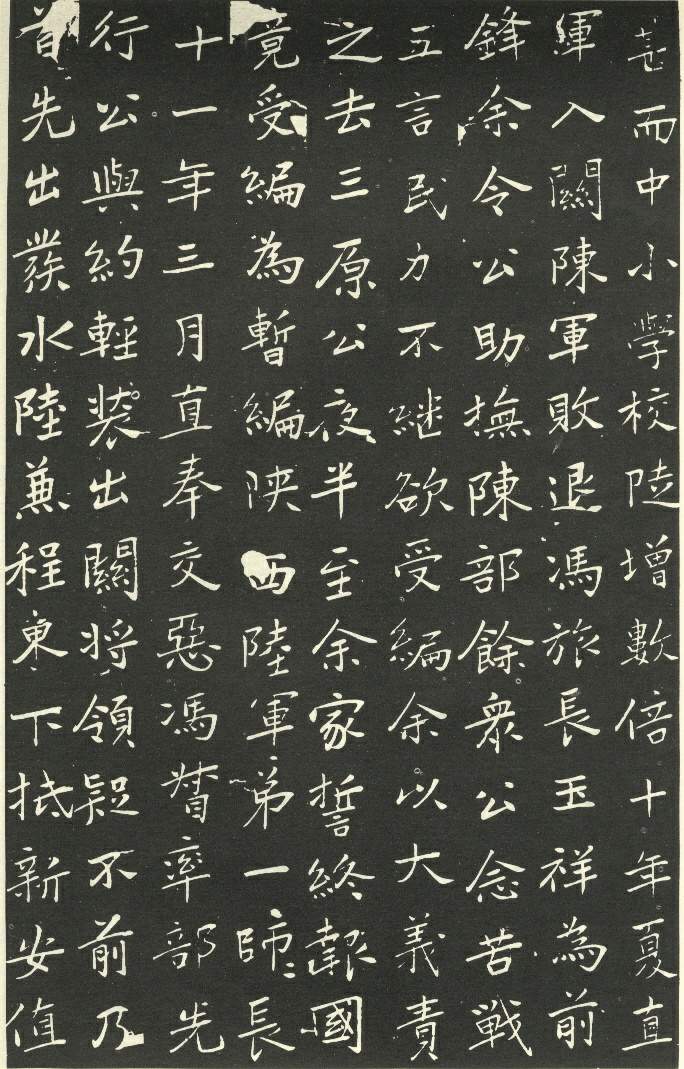 甚而中小學校陡增數倍十年夏直
軍入關陳軍敗退馮旅長玉祥為前
鋒余令公助撫陳部餘衆公念苦戰
五言民力不継欲受編余以大義責
之去三原公夜半至余家誓終報國
竟受編為暫編陝西陸軍弟一師〻長
十一年三月直奉交惡馮督率部先
行公與約輕装出關将領疑不前乃
首先出發水陸兼程東下抵新安值